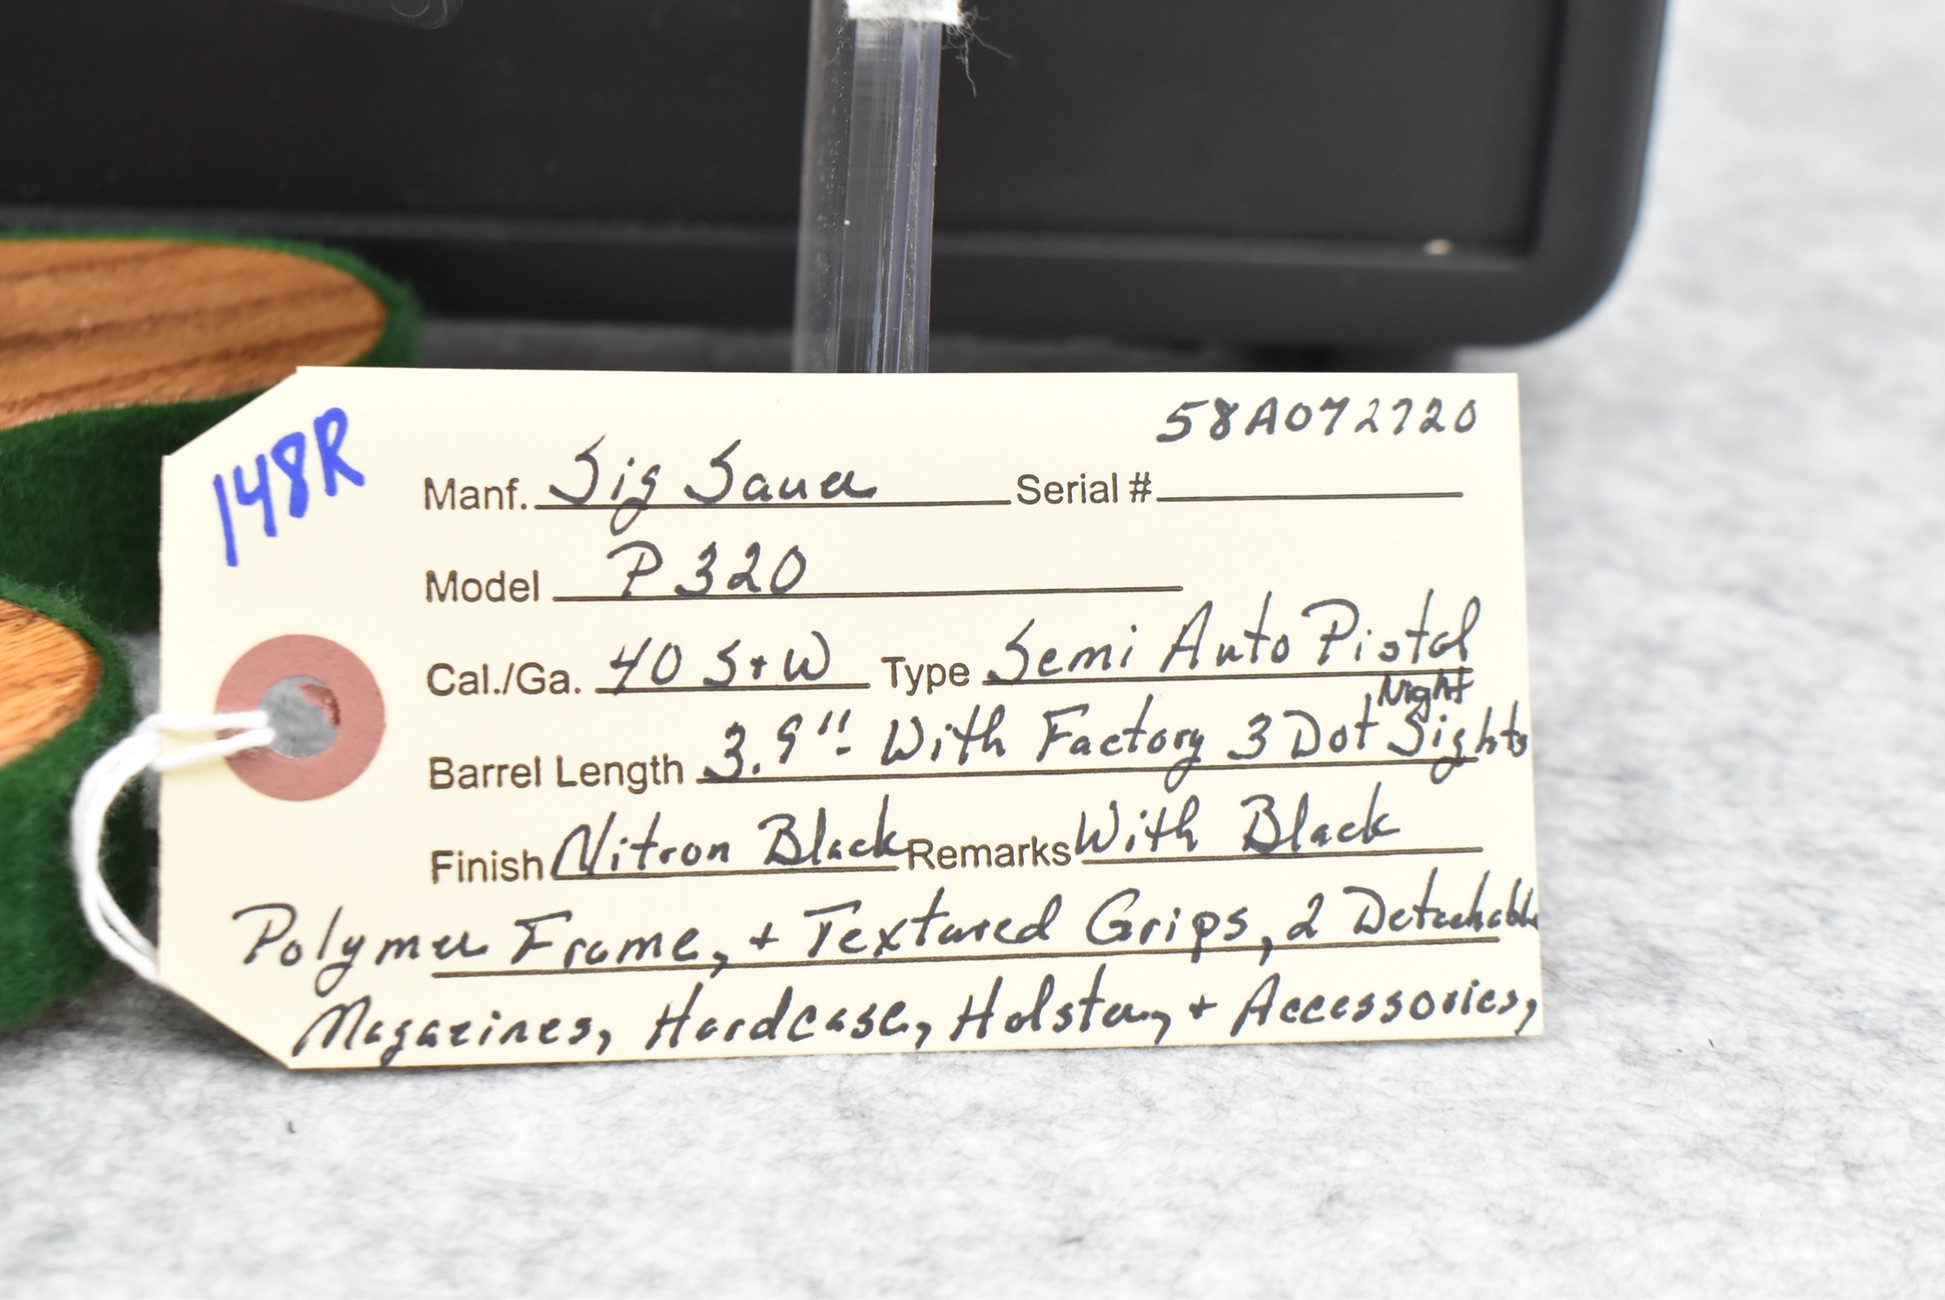 148R
58A072720
Manf. Sig Sauer Serial #
Model P320
Cal./Ga. 40 S+W Type Semi Auto Pistol
Night
Barrel Length 3.9" With Factory 3 Dot Sights
Finish Nitron Black Remarks With Black
Polymer Frame, + Textured Grips, 2 Detachable
Magazines, Hardcase, Holster, + Accessories,